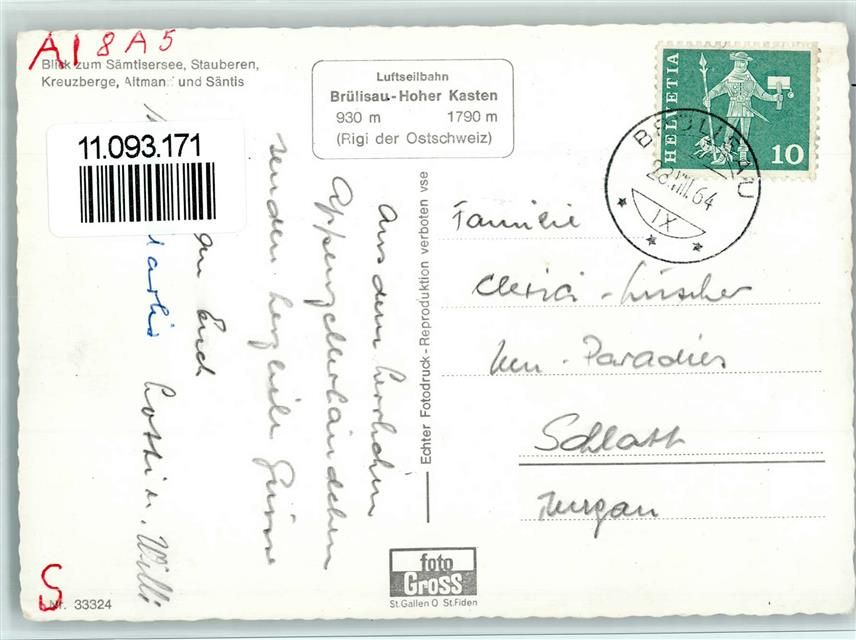 A1 8 A 5
Blick zum Sämtisersee, Stauberen,
Kreuzberge, Altman und Säntis
11.093.171
Luftseilbahn
Brülisau-Hoher Kasten
930 m 1790 m
(Rigi der Ostschweiz)
HELVETIA
10
BRÜLISAU
28.VIII.64
IX
Aus dem herrlichen
Appenzellerländchen
senden herzliche Grüsse
an Euch
Lotti u. Willi
Echter Fotodruck-Reproduktion verboten vse
Familie
Clerici-Lüscher
Neu-Paradies
Schlatt
Turgau
foto
Gross
St.Gallen O St.Fiden
S
Nr. 33324